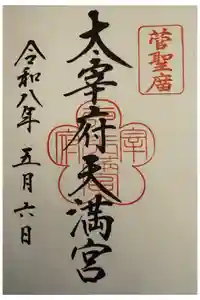 菅聖廟
太宰府天満宮
令和八年 五月六日